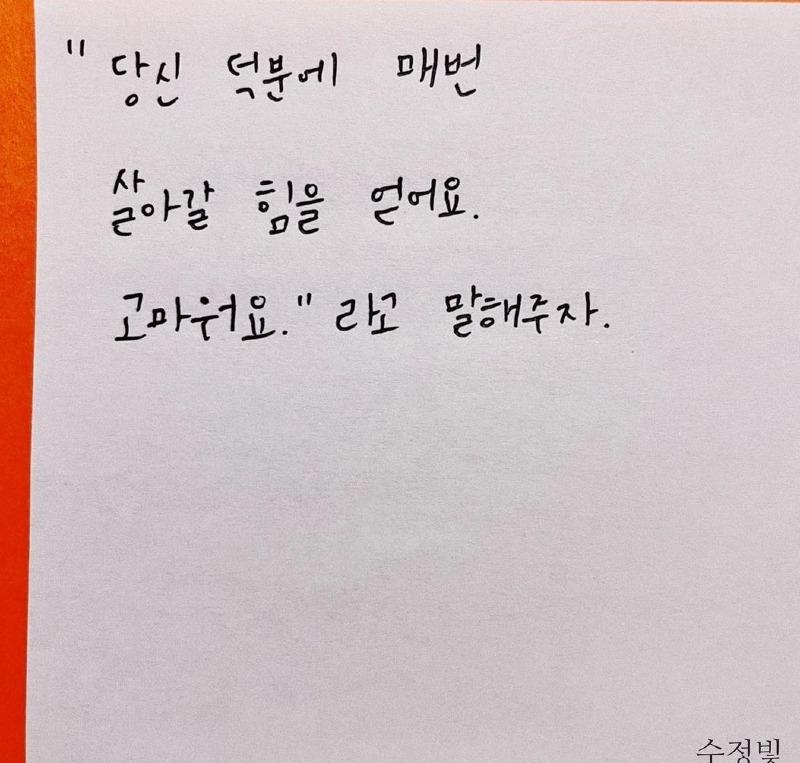 "당신 덕분에 매번
살아갈 힘을 얻어요.
고마워요."라고 말해주자.
수정빛